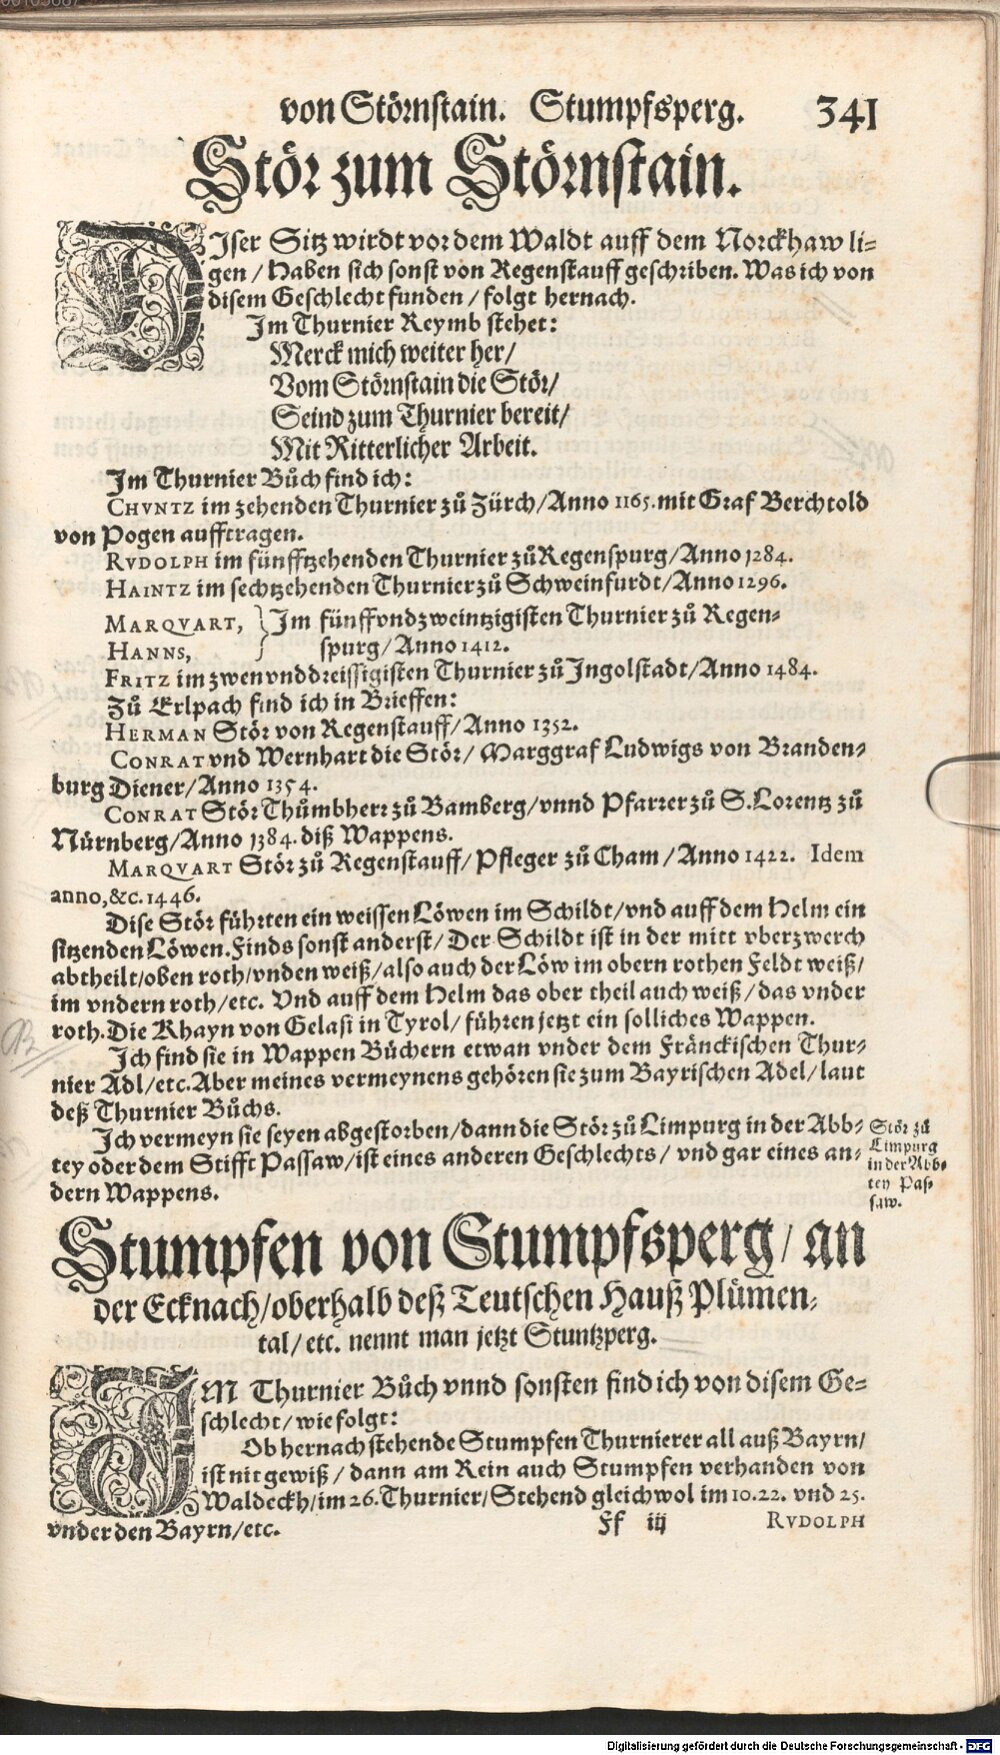 von Störnstain. Stumpfsperg. 341
Stör zum Störnstain.
DIser Sitz wirdt vor dem Waldt auff dem Norckhaw li=
gen / Haben sich sonst von Regenstauff geschriben. Was ich von
disem Geschlecht funden / folgt hernach.
Im Thurnier Reymb stehet:
Merck mich weiter her/
Vom Störnstain die Stör/
Seind zum Thurnier bereit/
Mit Ritterlicher Arbeit.
Im Thurnier Bůch find ich:
CHVNTZ im zehenden Thurnier zů Zürch/Anno 1165. mit Graf Berchtold
von Pogen aufftragen.
RVDOLPH im fünfftzehenden Thurnier zů Regenspurg/Anno 1284.
HAINTZ im sechtzehenden Thurnier zů Schweinfurdt/Anno 1296.
MARQVART, } Im fünffvndzweintzigisten Thurnier zů Regen=
HANNS, } spurg/Anno 1412.
FRITZ im zwenvnddreissigisten Thurnier zů Ingolstadt/Anno 1484.
Zů Erlpach find ich in Brieffen:
HERMAN Stör von Regenstauff/Anno 1352.
CONRAT vnd Wernhart die Stör/ Marggraf Ludwigs von Branden=
burg Diener/Anno 1354.
CONRAT Stör Thůmbherr zů Bamberg/vnnd Pfarrer zů S. Lorentz zů
Nürnberg/Anno 1384. diß Wappens.
MARQVART Stör zů Regenstauff/Pfleger zů Cham/Anno 1422. Idem
anno,&c. 1446.
Dise Stör führten ein weissen Löwen im Schildt/vnd auff dem Helm ein
sitzenden Löwen. Finds sonst anderst/ Der Schildt ist in der mitt vberzwerch
abtheilt/oben roth/vnden weiß/also auch der Löw im obern rothen Feldt weiß/
im vndern roth/etc. Vnd auff dem Helm das ober theil auch weiß/das vnder
roth. Die Khayn von Gelasi in Tyrol/ führen jetzt ein solliches Wappen.
Ich find sie in Wappen Büchern etwan vnder dem Fränckischen Thur=
nier Adl/etc. Aber meines vermeynens gehören sie zum Bayrischen Adel/laut
deß Thurnier Bůchs.
Ich vermeyn sie seyen abgestorben/dann die Stör zů Limpurg in der Abb=
tey oder dem Stifft Passaw/ist eines anderen Geschlechts/ vnd gar eines an=
dern Wappens.
Stör zů
Limpurg
in der Abb=
tey Pas=
saw.
Stumpfen von Stumpfsperg/ an
der Ecknach/oberhalb deß Teutschen Hauß Plůmen=
tal/etc. nennt man jetzt Stuntzperg.
IM Thurnier Bůch vnnd sonsten find ich von disem Ge=
schlecht/wie folgt:
Ob hernach stehende Stumpfen Thurnierer all auß Bayrn/
ist nit gewiß/dann am Rein auch Stumpfen verhanden von
Waldeckh/im 26. Thurnier/Stehend gleichwol im 10. 22. vnd 25.
vnder den Bayrn/etc.
Ff iij RVDOLPH
Digitalisierung gefördert durch die Deutsche Forschungsgemeinschaft - DFG